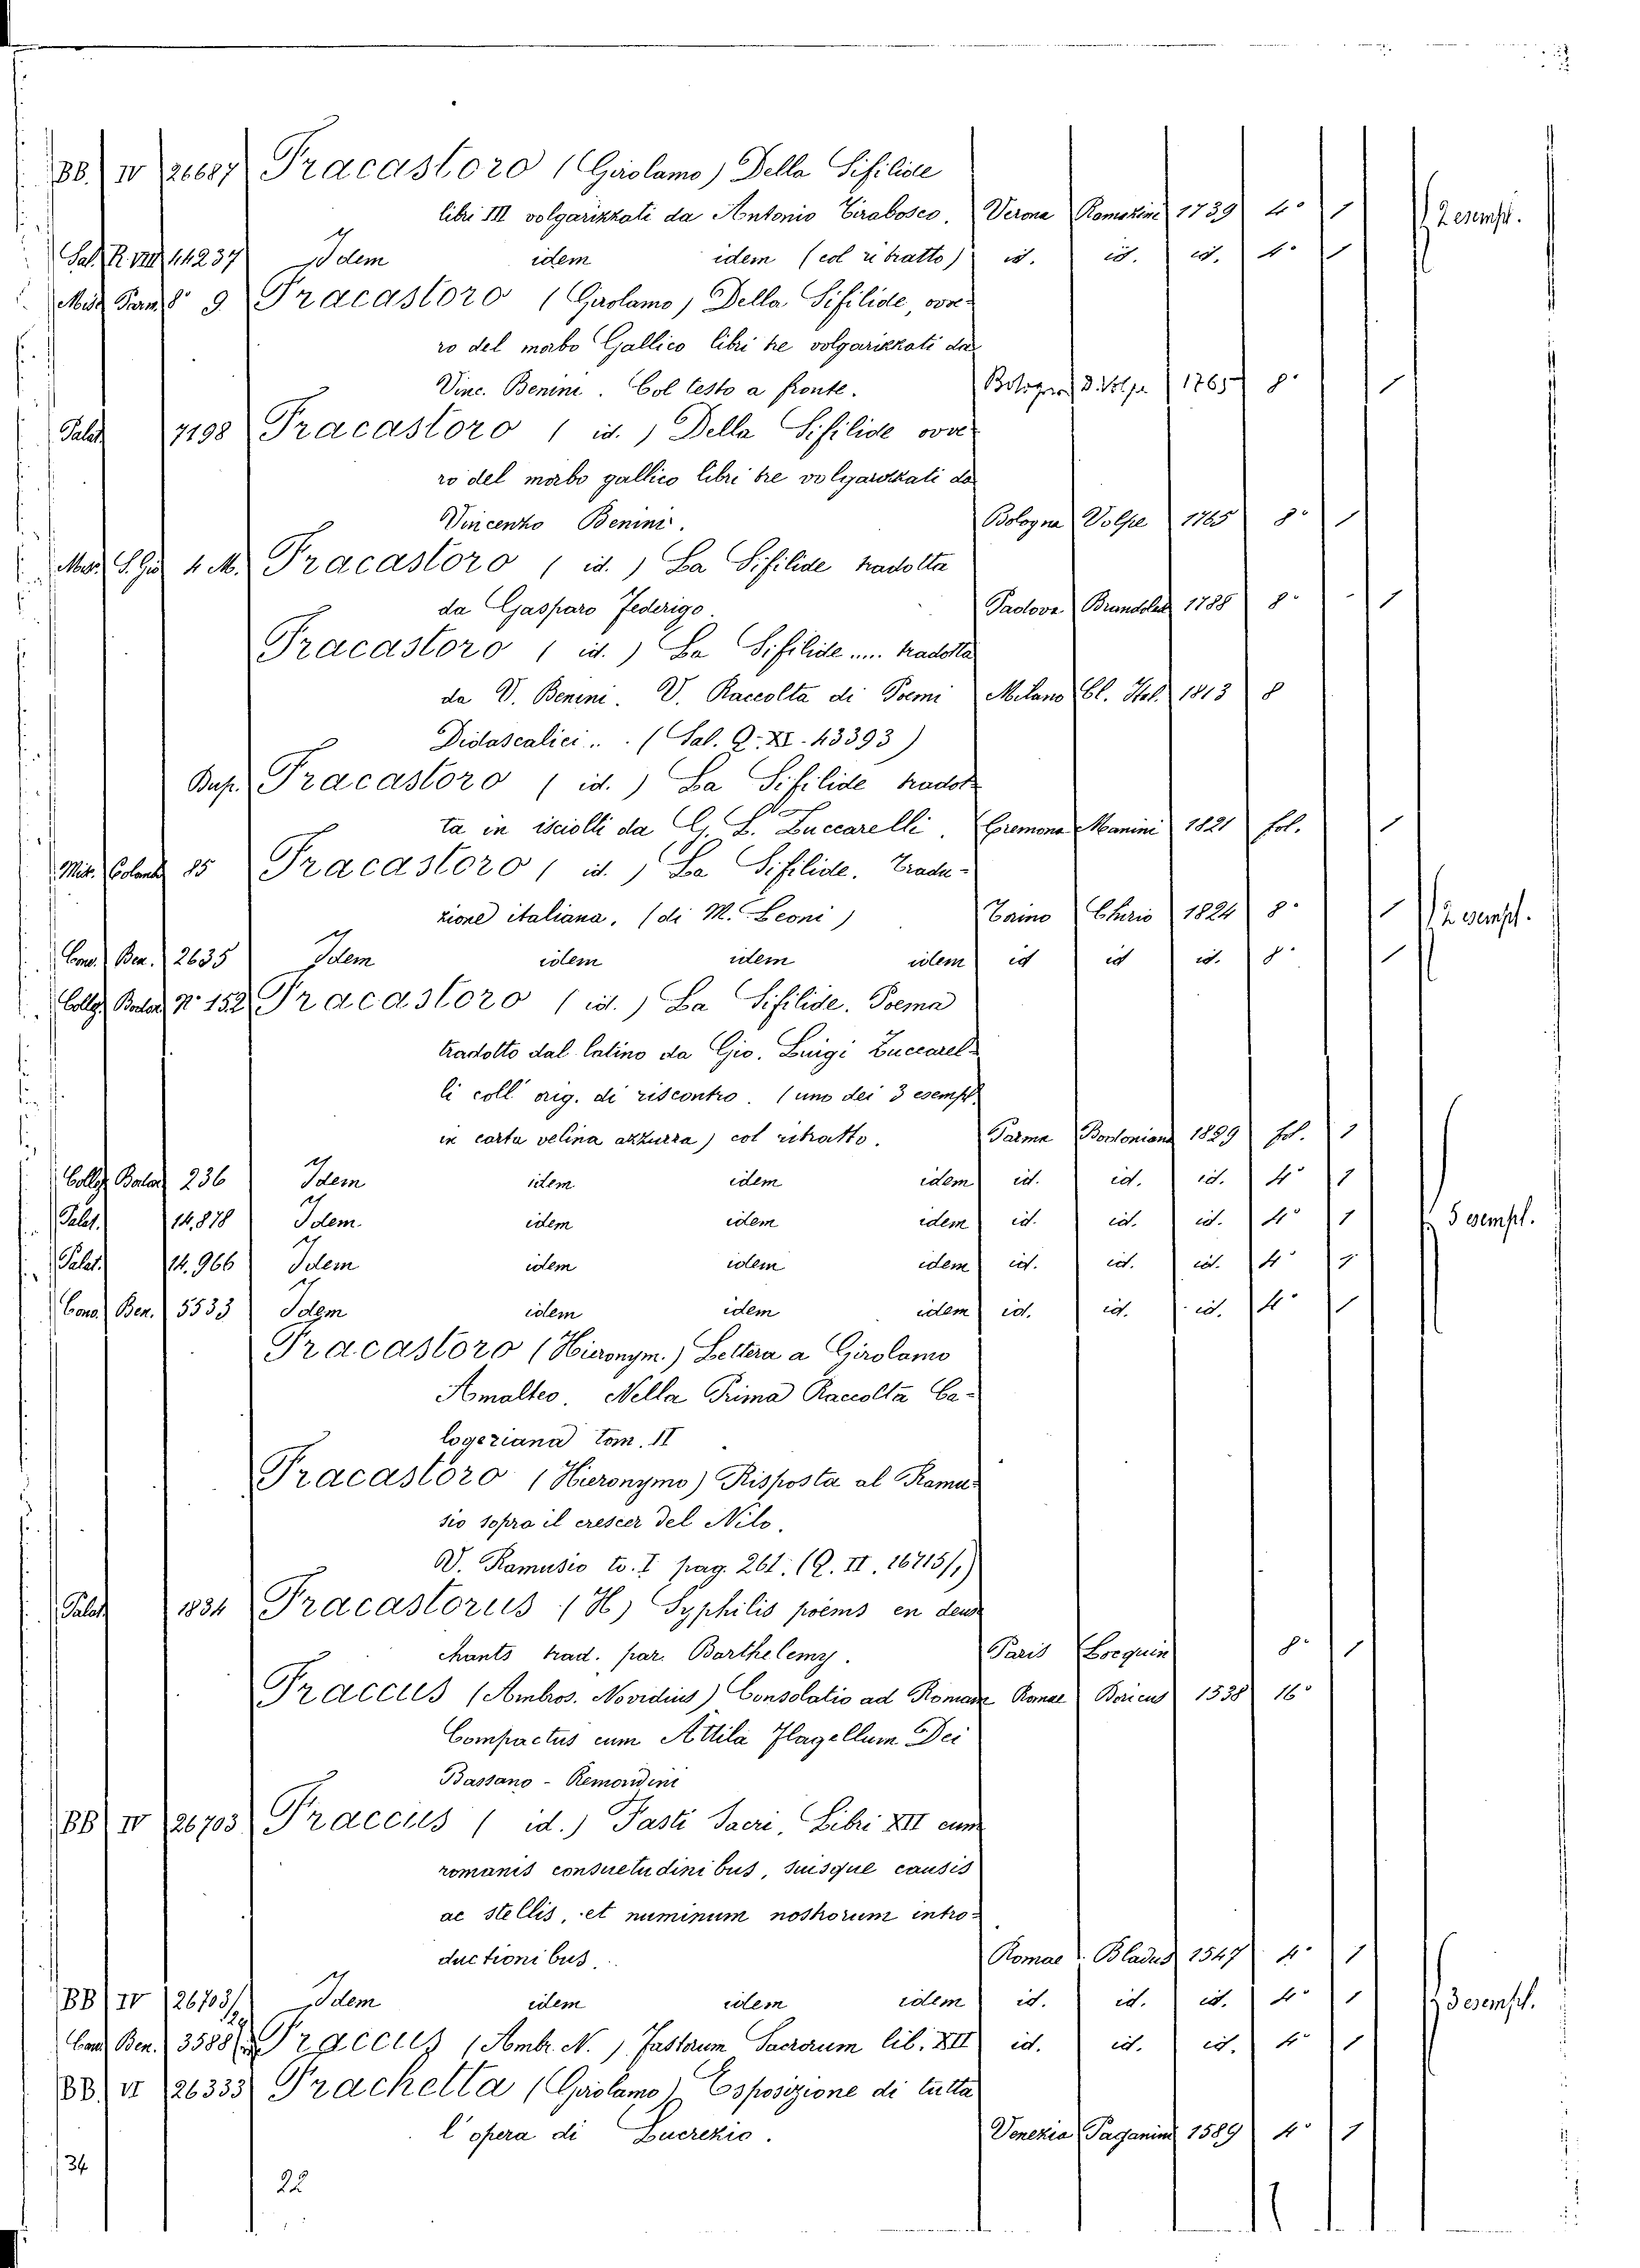 BB. IV 26687 Fracastoro (Girolamo) Della Sifilide
libri III volgarizzati da Antonio Tirabosco. Verona Ramazini 1739 4° 1 2 esempl.
Sal. R. VIII 44237 Idem idem idem (col ritratto) id. id. id. 4° 1
Misc. Parm. 8° 9 Fracastoro (Girolamo) Della Sifilide, ovve-
ro del morbo Gallico libri tre volgarizzati da
Vinc. Benini. Col testo a fronte. Bologna D. Volpe 1765 8° 1
Palat. 7198 Fracastoro (id.) Della Sifilide ovve-
ro del morbo gallico libri tre volgarizzati da
Vincenzo Benini. Bologna Volpe 1765 8° 1
4 M. Fracastoro (id.) La Sifilide tradotta
da Gasparo Federigo. Padova Brandoles 1788 8° 1
Fracastoro (id.) La Sifilide .... tradotta
da V. Benini. V. Raccolta di Poemi Milano Cl. Ital. 1813 8
Didascalici... (Sal. Q. XI. 43393)
Dup. Fracastoro (id.) La Sifilide tradot-
ta in isciolti da G. L. Zuccarelli. Cremona Manini 1821 fol. 1
Mis. Coland. 85 Fracastoro (id.) La Sifilide. Tradu-
zione italiana. (di M. Leoni) Torino Chirio 1824 8° 1 2 esempl.
Cons. Ben. 2635 Idem idem idem idem id id id. 8° 1
Colleg. Balar. N° 152 Fracastoro (id.) La Sifilide. Poema
tradotto dal latino da Gio. Luigi Zuccarel-
li coll' orig. di riscontro. (uno dei 3 esempl.
in carta velina azzurra) col ritratto. Parma Bodoniana 1829 fol. 1
Colleg. Balar. 236 Idem idem idem idem id. id. id. 4° 1
Palat. 14.878 Idem. idem idem idem id. id. id. 4° 1 5 esempl.
Palat. 14.966 Idem idem idem idem id. id. id. 4° 1
Cons. Ben. 5533 Idem idem idem idem id. id. id. 4° 1
Fracastoro (Hieronym.) Lettera a Girolamo
Amalteo. Nella Prima Raccolta Ca-
logeriana tom. II
Fracastoro (Hieronymo) Risposta al Ramu-
sio sopra il crescer del Nilo.
V. Ramusio to. I pag. 261. (Q. II. 16715/1)
Palat. 1834 Fracastorius (H) Syphilis poëms en deux
chants trad. par. Barthelemy. Paris Bocquin 8° 1
Fraccus (Ambros. Novidius) Consolatio ad Roman Romae Bericus 1538 16°
Compactus cum Attila Flagellum Dei
Bassano - Remondini
BB IV 26703 Fraccus (id.) Fasti Sacri. Libri XII cum
romanis consuetudinibus, suisque causis
ac stellis, et numinum nostrorum intro-
ductionibus... Romae Bladus 1547 4° 1
BB IV 26703/2 Idem idem idem idem id. id. id. 4° 1 3 esempl.
Cons. Ben. 3588 Fraccus (Ambr. N.) Fastorum Sacrorum lib. XII id. id. id. 4° 1
BB. VI 26333 Frachetta (Girolamo) Esposizione di tutta
l'opera di Lucrezio. Venezia Paganini 1589 4° 1
34
22